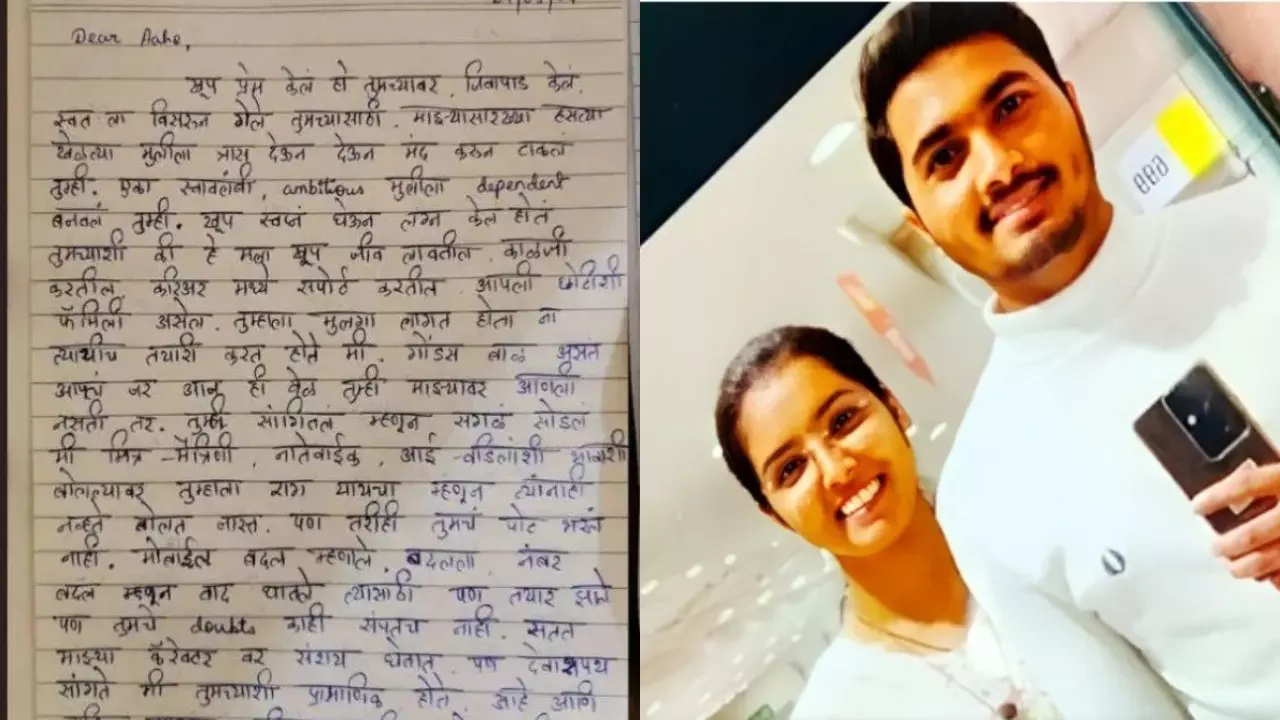 Dear Aaho,
खूप प्रेम केलं हो तुमच्यावर. जिवापाड केलं.
स्वत ला विसरून गेले तुमच्यासाठी. माझ्यासारख्या हसत्या
खेळत्या मुलीला त्रास देऊन देऊन मंद करून टाकलं
तुम्ही. एका स्वावलंबी, ambitious मुलीला dependent
बनवलं तुम्ही. खूप स्वप्नं घेऊन लग्न केलं होतं
तुमच्याशी की हे मला खूप जीव लावतील. काळजी
करतील, करिअर मध्ये सपोर्ट करतील. आपली छोटीशी
फॅमिली असेल. तुम्हाला मुलगा लागत होता ना
त्याचीच तयारी करत होते मी. गोंडस बाळ असतं
आपलं जर आज ही वेळ तुम्ही माझ्यावर आणली
नसती तर. तुम्ही सांगितलं म्हणून सगळं सोडलं
मी मित्र-मैत्रिणी, नातेवाईक, आई-वडिलांशी भावाशी
बोलल्यावर तुम्हाला राग यायचा म्हणून त्यांनाही
नव्हते बोलत जास्त. पण तरीही तुमचं पोट भरलं
नाही. मोबाईल बदल म्हणाले, बदलला. नंबर
बदल म्हणून वाद घातले त्यासाठी पण तयार झाले
पण तुमचे doubts काही संपतच नाही. सतत
माझ्या कॅरेक्टर वर संशय घेतात. पण देवाशपथ
सांगते मी तुमच्याशी प्रामाणिक होते, आहे आणि